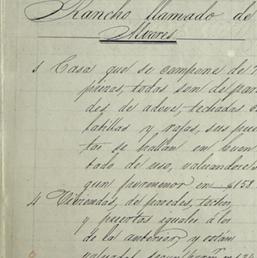 Rancho llamado de
Alvares
1 Casa que se compone de 7
piezas, todas son de pare
des de adove, techadas c
tablillas y rafas, sus puer
tas se hallan en buen
tado de uso, valuandore
gun pormenor en $153
4 Viviendas, de paredes, techos,
y puertas iguales á los
de la anterior, y están